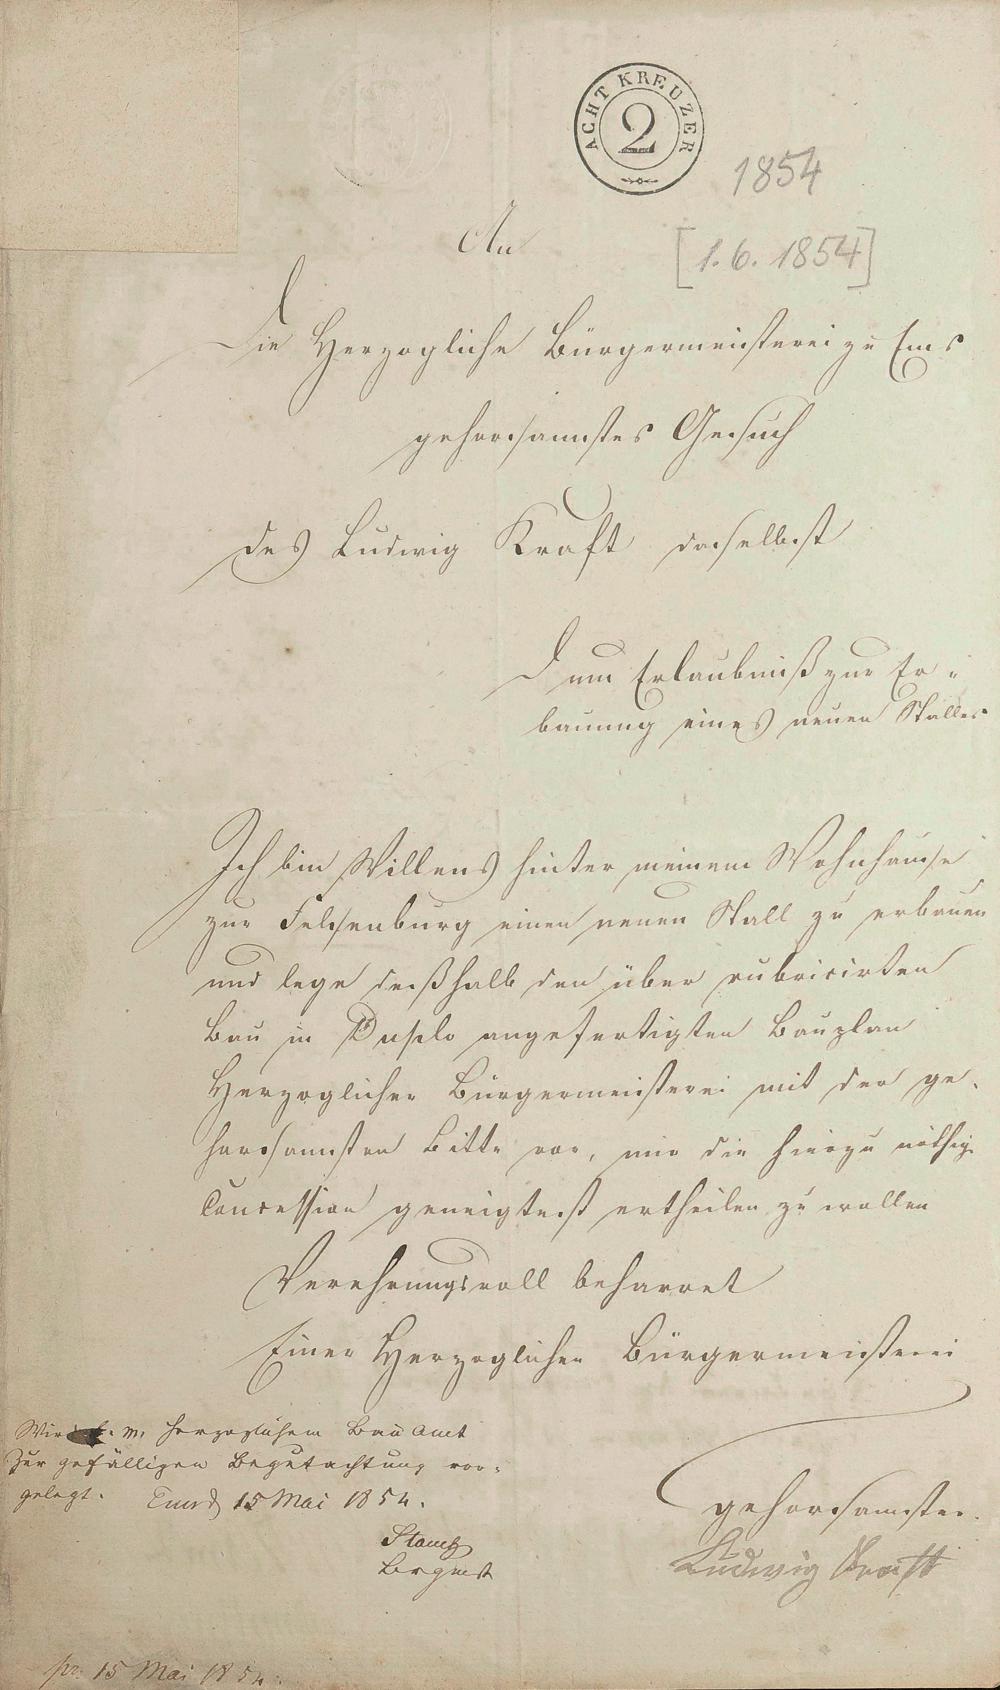 ACHT KREUZER
2
1854
[1.6.1854]
An
Die Herzogliche Bürgermeisterei zu Ems
gehorsamstes Gesuch
des Ludwig Kraft daselbst
um Erlaubniß zur Er-
bauung eines neuen Stalles
Ich bin Willens hinter meinem Wohnhause
zur Felsenburg einen neuen Stall zu erbauen
und lege deßhalb den über rubricirten
Bau in Duplo angefertigten Bauplan
Herzoglicher Bürgermeisterei mit der ge-
horsamsten Bitte vor, mir die hierzu nöthige
Concession geneigtest ertheilen zu wollen
Verehrungsvoll beharret
Einer Herzoglichen Bürgermeisterei
gehorsamster
Ludwig Kraft
Wird herzoglichem Bau Amt
Zur gefälligen Begutachtung vor-
gelegt. Ems d 15 Mai 1854.
pr. 15 Mai 1854.